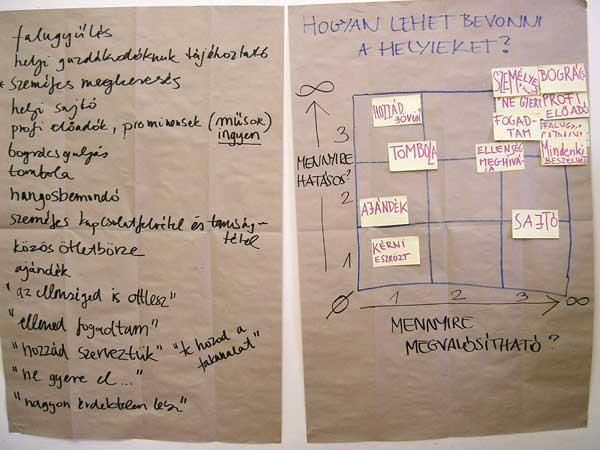 falugyűlés
helyi gazdálkodóknak tájékoztató
* személyes megkeresés
helyi sajtó
profi előadók, prominensek (műsor)
ingyen
bográcsgulyás
tombola
hangosbemondó
személyes kapcsolatfelvétel és tanúság-
tétel
közös ötletbörze
ajándék
"az ellenséged is ott lesz"
"ellened fogadtam"
"hozzád szerveztük" "te hozod a
fakanalat"
"ne gyere el..."
"nagyon érdektelen lesz"
HOGYAN LEHET BEVONNI
A HELYIEKET?
SZEMÉLYE
BOGRÁCS
HOZZÁD
JÖVÜNK
NE GYERE
PROFI
ELŐADÓ
FOGAD-
TAM
FALUGY.
TOMBOLA
ELLENSÉG
MEGHÍVÁ
Mindenki
BESZÉLHET
MENNYIRE
HATÁSOS?
∞
3
2
1
AJÁNDÉK
SAJTÓ
KÉRNI
ESZKÖZT
Ø 1 2 3 ∞
MENNYIRE
MEGVALÓSÍTHATÓ?